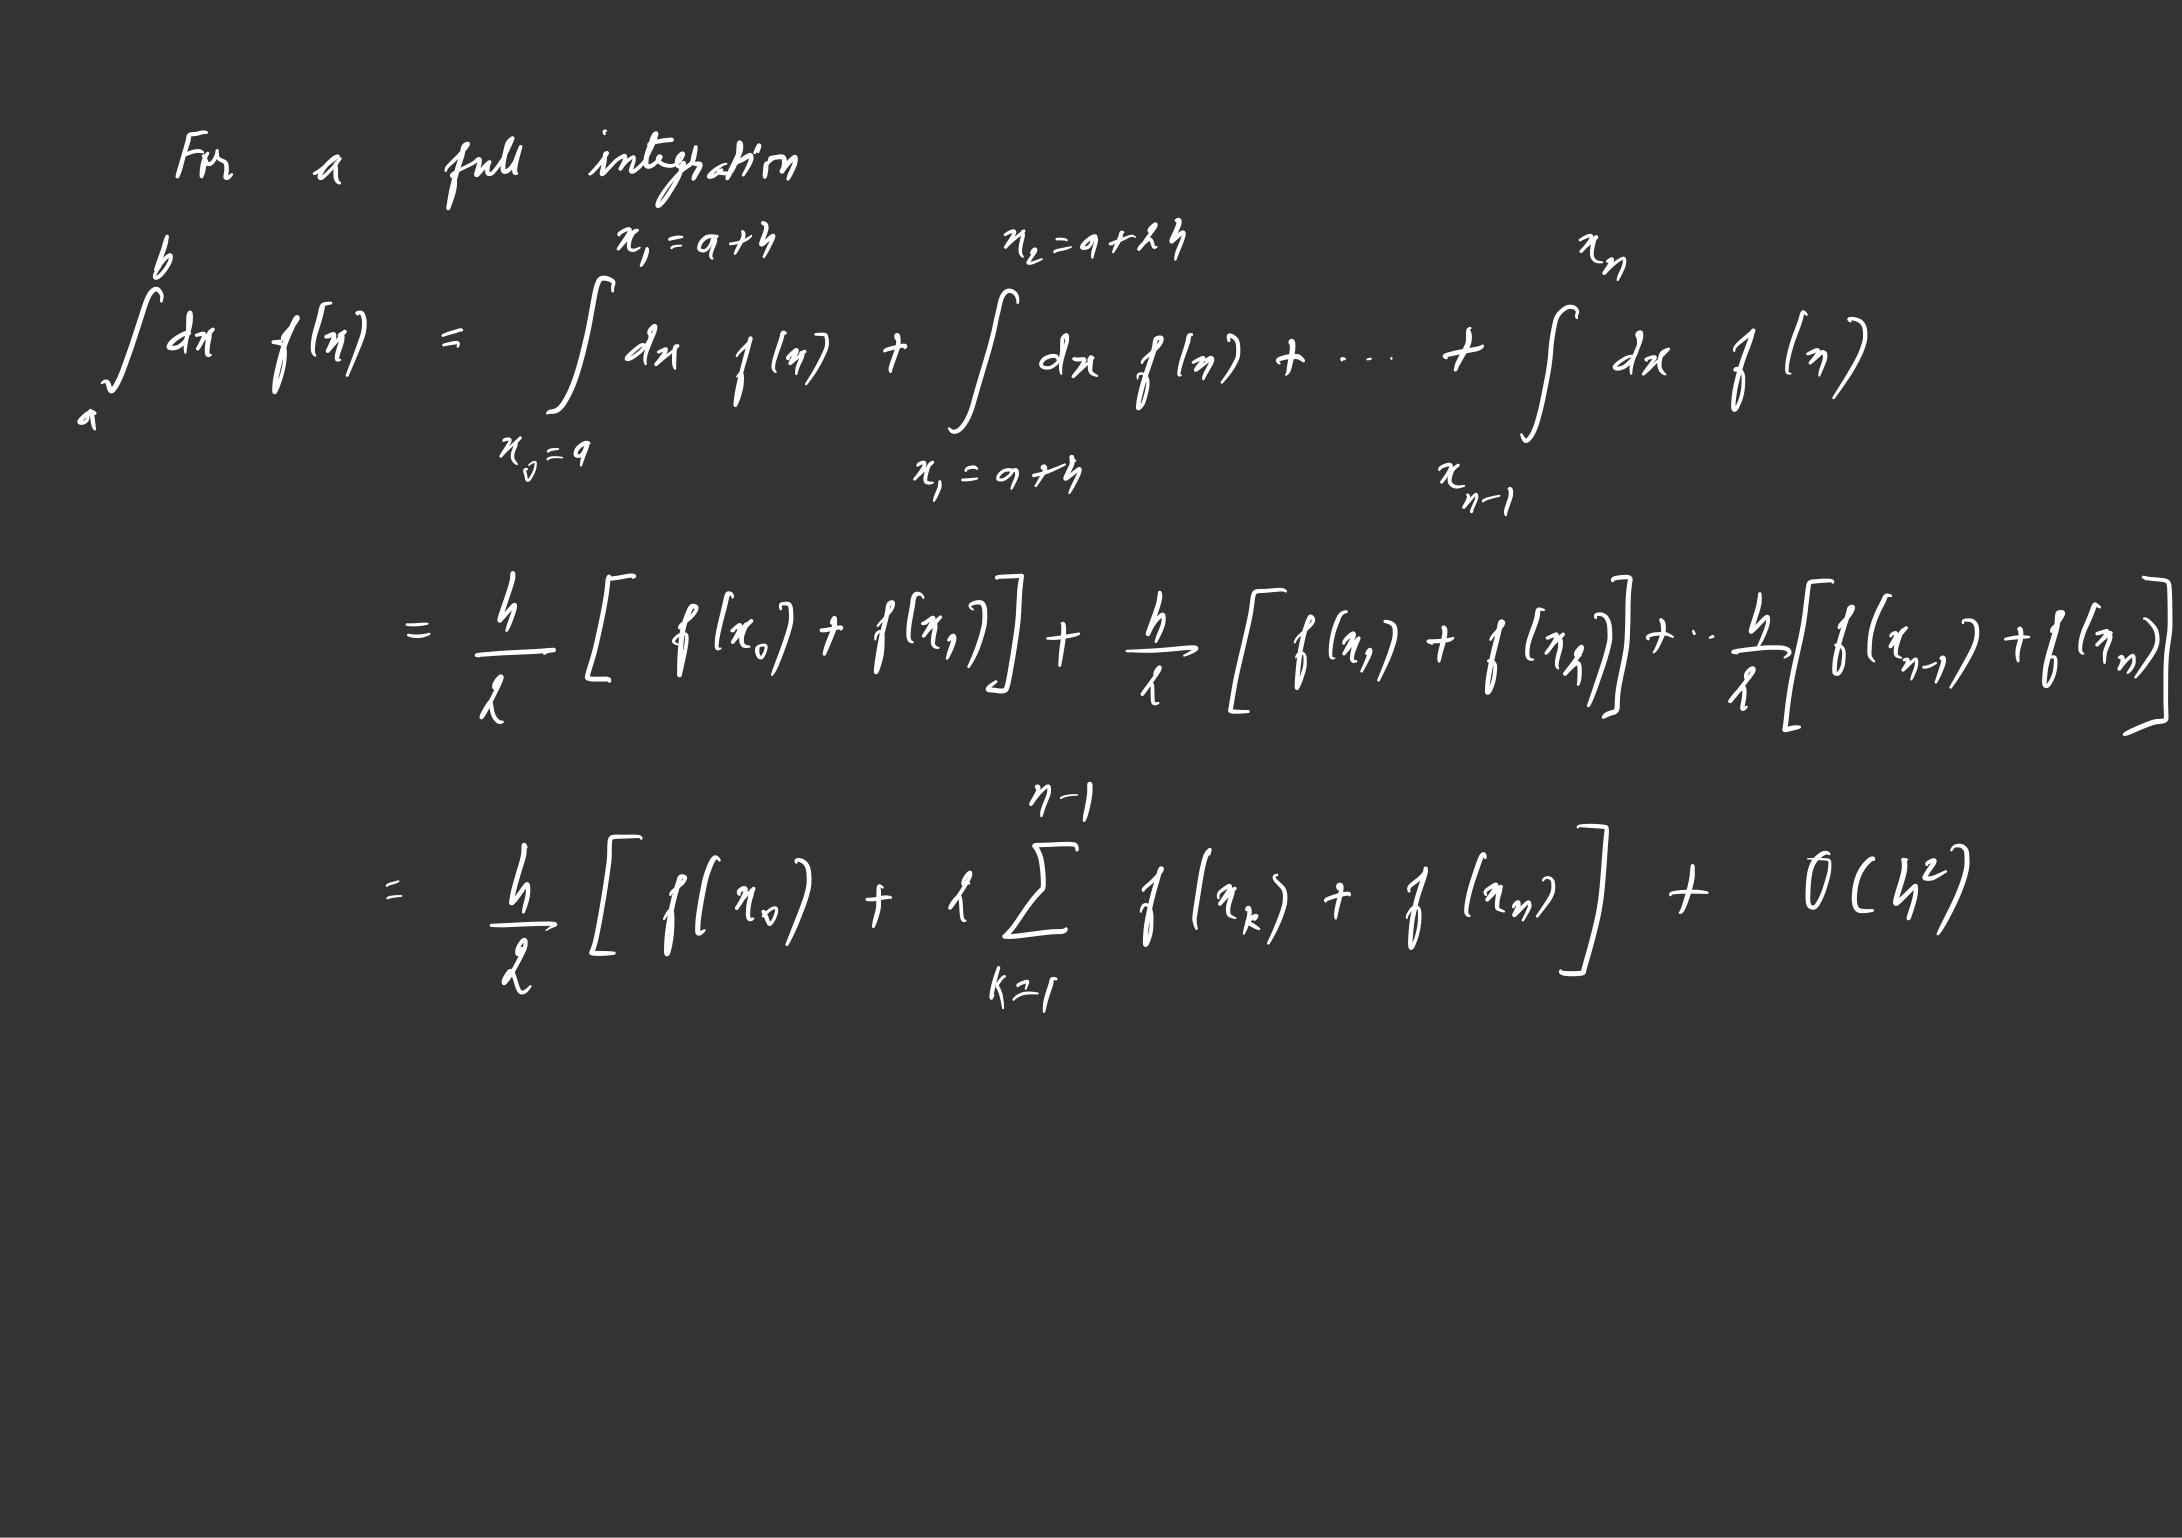 For a full integration
∫_a^b dx f(x) = ∫_{x_0=a}^{x_1=a+h} dx f(x) + ∫_{x_1=a+h}^{x_2=a+2h} dx f(x) + ... + ∫_{x_{n-1}}^{x_n} dx f(x)
= h/2 [ f(x_0) + f(x_1) ] + h/2 [ f(x_1) + f(x_2) ] + ... h/2 [ f(x_{n-1}) + f(x_n) ]
= h/2 [ f(x_0) + 2 ∑_{k=1}^{n-1} f(x_k) + f(x_n) ] + O(h^2)